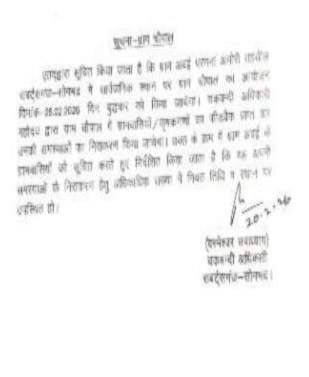 सूचना-ग्राम चौपाल
एतद्द्वारा सूचित किया जाता है कि ग्राम परगना तहसील
राबर्ट्सगंज-सोनभद्र में सार्वजनिक स्थान पर ग्राम चौपाल का आयोजन
दिनांक- 26.02.2026 दिन को किया जायेगा। चकबन्दी अधिकारी
महोदय द्वारा ग्राम चौपाल में ग्रामवासियों/ का प्राप्त कर
उनकी समस्याओं का निराकरण किया जायेगा। के क्रम में ग्राम के
ग्रामवासियों को सूचित करते हुए निर्देशित किया जाता है कि वह अपनी
समस्याओं के निराकरण हेतु अधिकाधिक संख्या में नियत तिथि व स्थान पर
उपस्थित हो।
20-2-26
चकबन्दी अधिकारी
राबर्ट्सगंज-सोनभद्र।